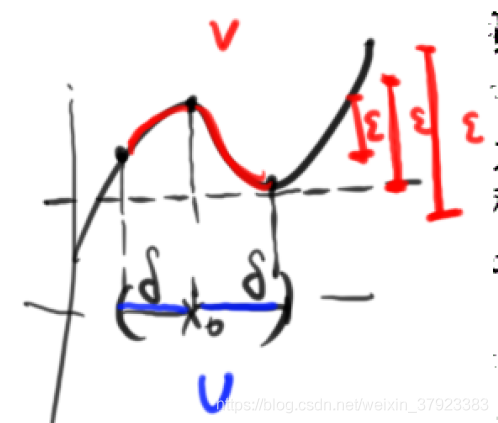 V
ε ε ε
δ δ
( x₀ )
U
https://blog.csdn.net/weixin_37923383